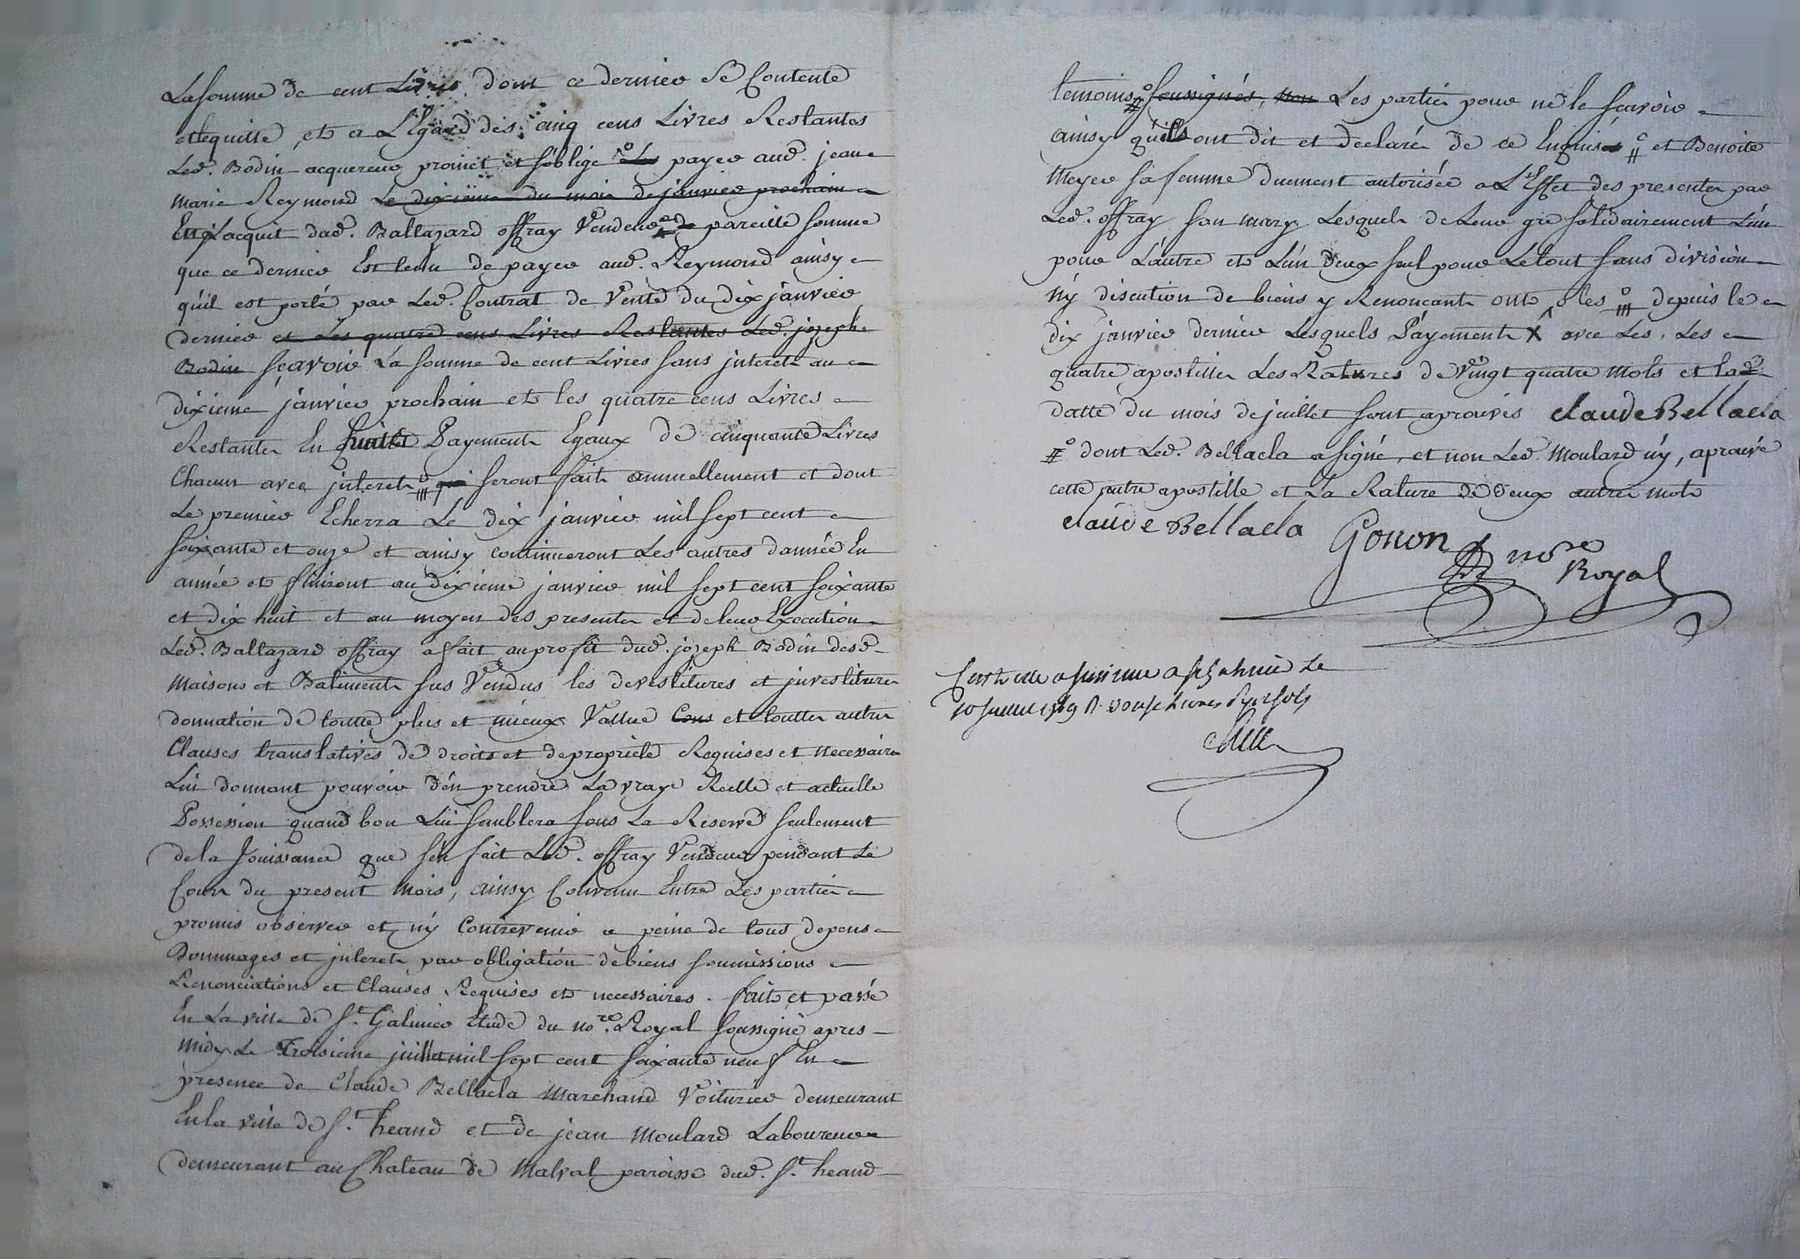 La somme de cent Livres dont ce dernier Se Contente
et le quitte, et a L'Egard des cinq cens Livres Restantes
Led. Bodin acquereur promet et s'oblige de Les payer aud. jean
Marie Reymond Le dixieme du mois de janvier prochain
En L'acquit dud. Baltazard offray Vendeur de pareille somme
que ce dernier Est tenu de payer aud. Reymond ainsy
qu'il est porté par Led. Contrat de Vente du dix janvier
dernier et Les quatre cens Livres Restantes Led. jozeph
Bodin sçavoir La somme de cent Livres sans interets au
dixieme janvier prochain et les quatre cens Livres
Restantes En huitte Payements Egaux de cinquante Livres
Chacun avec interets qui seront faits annuellement et dont
Le premier Echerra Le dix janvier mil sept cent
soixante et onze et ainsy continueront Les autres d'année En
année et finiront au dixieme janvier mil sept cent soixante
et dix huit et au moyen des presentes et de leur Execution
Led. Baltazard offray a fait au profit dud. jozeph Bodin desd.
Maisons et Batiments sus Vendus les devestitures et investitures
donnation de toutte plus et mieux Vallue Cons et touttes autres
Clauses translatives de droits et de proprieté Requises et necessaires
Lui donnant pouvoir d'én prendre La vraye Reelle et actuelle
Possession quand bon Lui semblera sous La Reserve seulement
de la Jouissance que s'en fait Led. offray Vendeur pendant Le
Cour du present Mois, ainsy Convenu Entre Les parties
promis observer et n'y Contrevenir a peine de tous depens
Dommages et interets par obligation de biens soumissions
Renonciations et Clauses Requises et necessaires. fait et passé
En La ville de St. Galmier Etude du no.re Royal soussigné apres
midy Le Troisieme juillet mil sept cent soixante neuf En
presence de Claude Bellacla Marchand Voiturier demeurant
En la ville de St. heand et de jean Moulard Laboureur
demeurant au Chateau de Malval paroisse dud. St. heand
temoins soussignés, non Les parties pour ne le sçavoir
ainsy qu'ils ont dit et declaré de ce Enquis et Benoite
Meyer sa femme duement autorisée a L'Effet des presentes par
Led. offray son mary Lesquels de Leur gré solidairement L'un
pour L'autre et L'un d'eux seul pour Le tout sans division
n'y discution de biens y Renonçant ont o les depuis le
dix janvier dernier Lesquels Payements X avec Les. Les
quatre apostilles Les Ratures de Vingt quatre Mots et lad.
datte du mois de juillet sont aprouvés Claude Bellacla
dont Led. Bellacla a signé, et non Led. Moulard n'y, aprouvé
cette autre apostille et La Rature de deux autres mots
Claude Bellacla Gonon nore
Royal